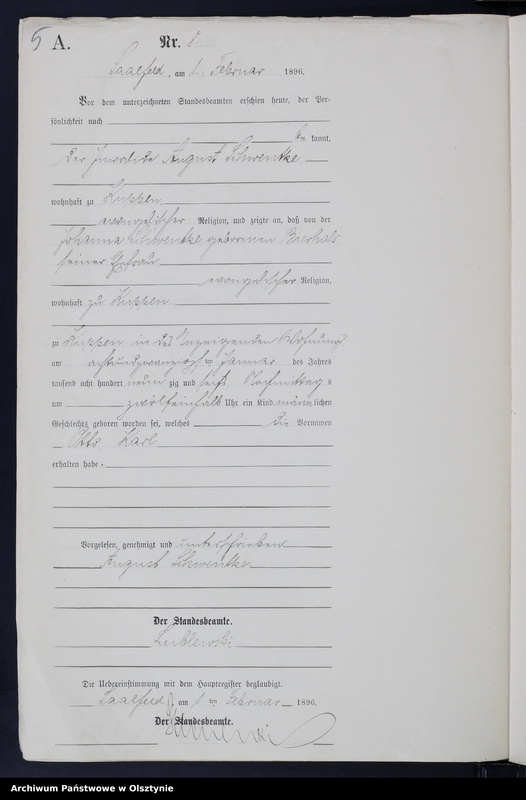 5 A. Nr. 8
Saalfeld, am 1. Februar 1896.
Vor dem unterzeichneten Standesbeamten erschien heute, der Per-
sönlichkeit nach
be kannt,
der Invalide August Schwentke
wohnhaft zu Kuppen
evangelischer Religion, und zeigte an, daß von der
Johanna Schwentke geborenen
seiner Ehefrau
evangelischer Religion,
wohnhaft zu Kuppen
zu Kuppen in des Anzeigenden Wohnung
am achtundzwanzigsten Januar des Jahres
tausend acht hundert neun zig und sechs Nachmittags
um zwölfeinhalb Uhr ein Kind männlichen
Geschlechts geboren worden sei, welches die Vornamen
Otto Karl
erhalten habe.
Vorgelesen, genehmigt und unterschrieben
August Schwentke
Der Standesbeamte.
Lublewski
Die Uebereinstimmung mit dem Hauptregister beglaubigt.
Saalfeld, am 1 ten Februar 1896.
Der Standesbeamte.
Archiwum Państwowe w Olsztynie